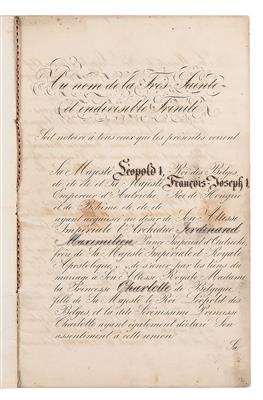 Au nom de la Très Sainte
et indivisible Trinité
Soit notoire à tous ceux que les présentes verront
Sa Majesté Léopold I, Roi des Belges
&c &c &c et Sa Majesté François-Joseph I,
Empereur d'Autriche Roi de Hongrie
et de Bohême &c, &c, &c
ayant acquiescé au désir de Son Altesse
Impériale l'Archiduc Ferdinand
Maximilien Prince Impérial d'Autriche,
frère de Sa Majesté Impériale et Royale
Apostolique, de s'unir par les liens du
mariage à Son Altesse Royale Madame
la Princesse Charlotte de Belgique
fille de Sa Majesté le Roi Léopold des
Belges et la dite Sérénissime Princesse
Charlotte ayant également déclaré Son
assentiment à cette union
Sa